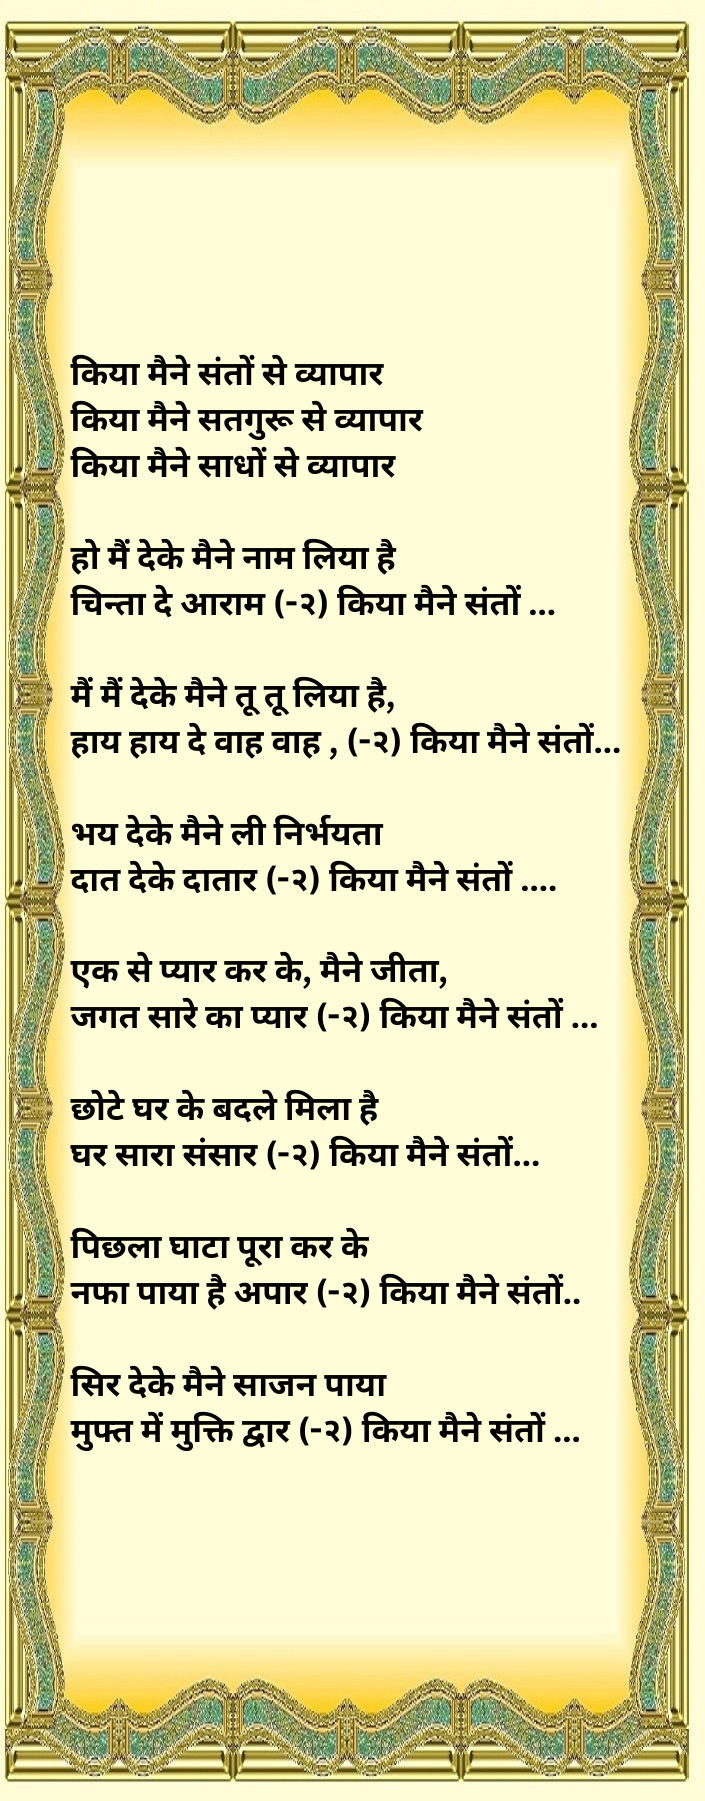 किया मैने संतों से व्यापार
किया मैने सतगुरू से व्यापार
किया मैने साधों से व्यापार
हो मैं देके मैने नाम लिया है
चिन्ता दे आराम (-२) किया मैने संतों ...
मैं मैं देके मैने तू तू लिया है,
हाय हाय दे वाह वाह , (-२) किया मैने संतों...
भय देके मैने ली निर्भयता
दात देके दातार (-२) किया मैने संतों ....
एक से प्यार कर के, मैने जीता,
जगत सारे का प्यार (-२) किया मैने संतों ...
छोटे घर के बदले मिला है
घर सारा संसार (-२) किया मैने संतों...
पिछला घाटा पूरा कर के
नफा पाया है अपार (-२) किया मैने संतों..
सिर देके मैने साजन पाया
मुफ्त में मुक्ति द्वार (-२) किया मैने संतों ...